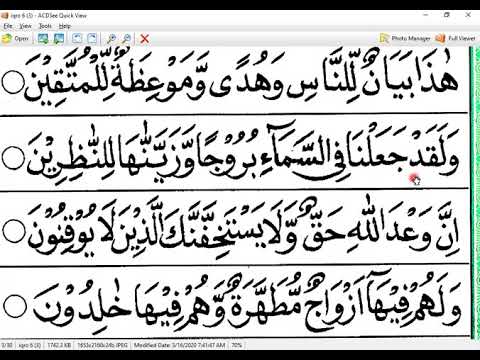 iqro 6 (3) - ACDSee Quick View
Open
Photo Manager
Full Viewer
هٰذَا بَيَانٌ لِّلنَّاسِ وَهُدًى وَّمَوْعِظَةٌ لِّلْمُتَّقِيْنَ
وَلَقَدْ جَعَلْنَا فِى السَّمَآءِ بُرُوْجًا وَّزَيَّنّٰهَا لِلنّٰظِرِيْنَ
اِنَّ وَعْدَ اللّٰهِ حَقٌّ وَّلَا يَسْتَخِفَّنَّكَ الَّذِيْنَ لَا يُوْقِنُوْنَ
وَلَهُمْ فِيْهَآ اَزْوَاجٌ مُّطَهَّرَةٌ وَّهُمْ فِيْهَا خٰلِدُوْنَ
3/30 iqro 6 (3) 1742.3 KB 1653x2160x24b JPEG Modified Date: 3/16/2020 7:41:47 AM 70%